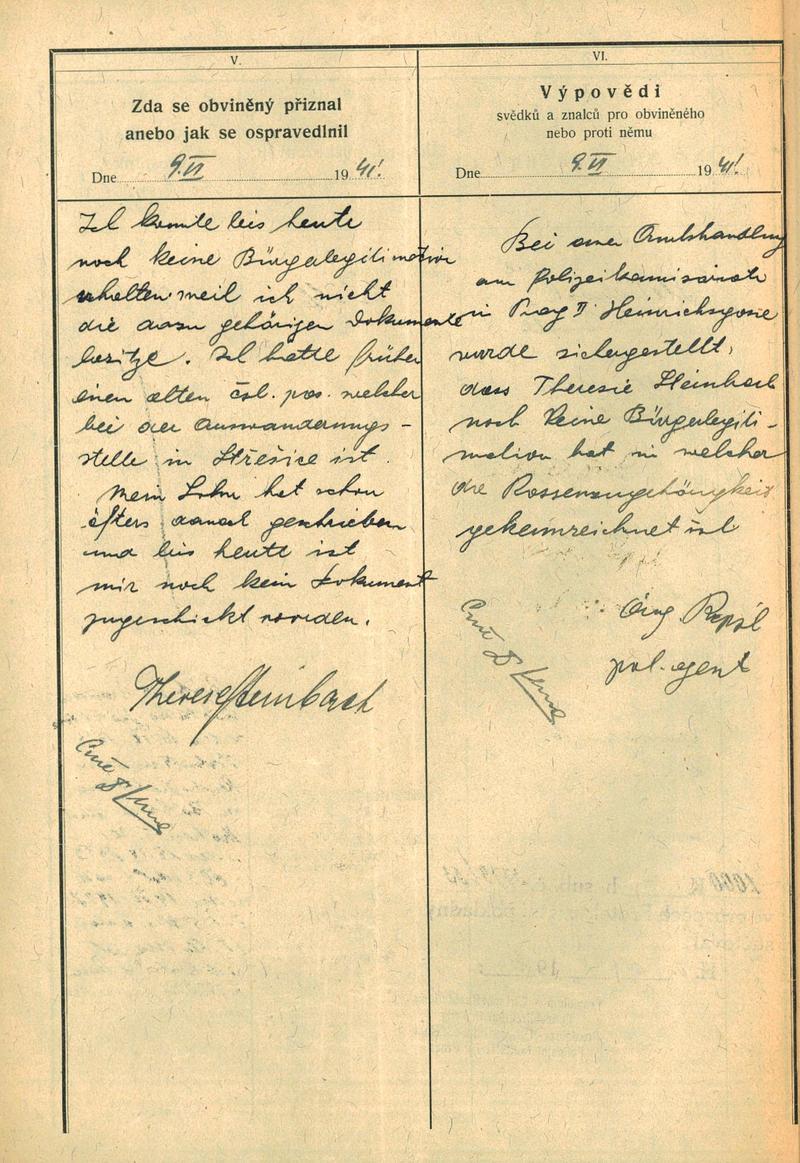 V.
Zda se obviněný přiznal
anebo jak se ospravedlnil
Dne 9. VI 1941!
Ich konnte bis heute
noch keine Bürgalegitimation
erhalten weil ich nicht
die dazu gehörigen Dokumente
besitze. Ich hatte früher
einen alten čsl. pas. welcher
bei der Auswanderungs-
stelle in Střešice ist.
Mein Sohn hat schon
öfters danach geschrieben
und bis heute ist
mir noch kein Dokument
zugeschickt worden.
Therese Steinbach
VI.
Výpovědi
svědků a znalců pro obviněného
nebo proti němu
Dne 9. VI 1941!
Bei einer Amtshandlung
am Polizeikomisariate
in Prag II Heinrichsgasse
wurde sichergestellt,
dass Theresie Steinbach
noch keine Bürgalegiti-
mation hat in welcher
die Rassenzugehörigkeit
gekennzeichnet ist.
pol. agent